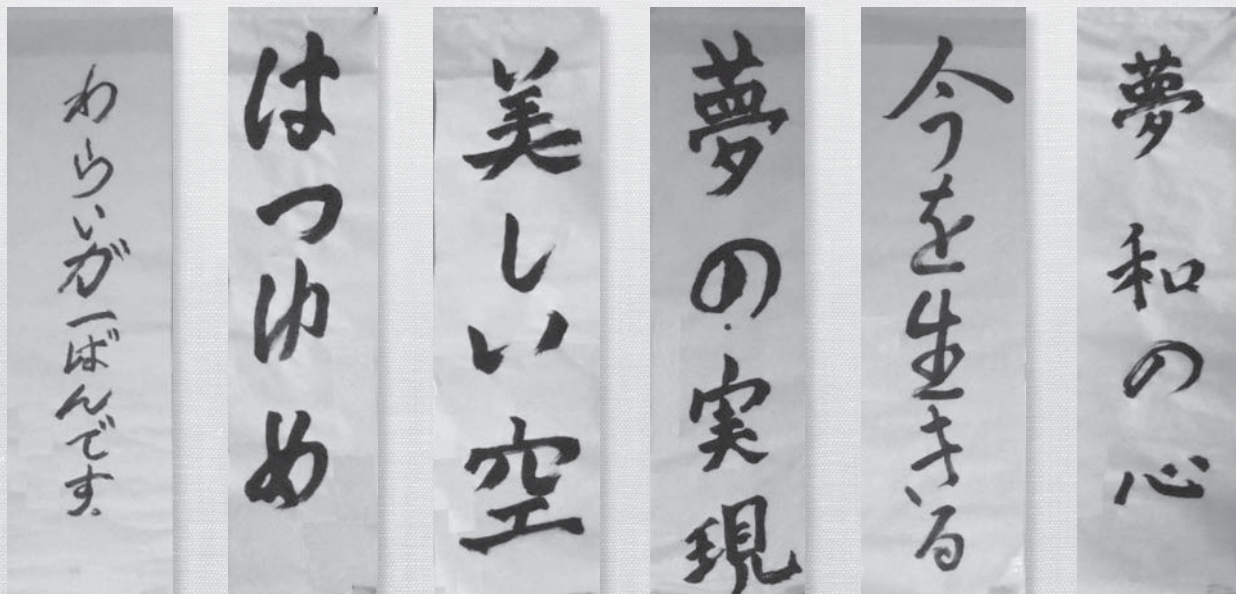 夢 和の心
今を生きる
夢の実現
美しい空
はつゆめ
わらいが一ばんです。